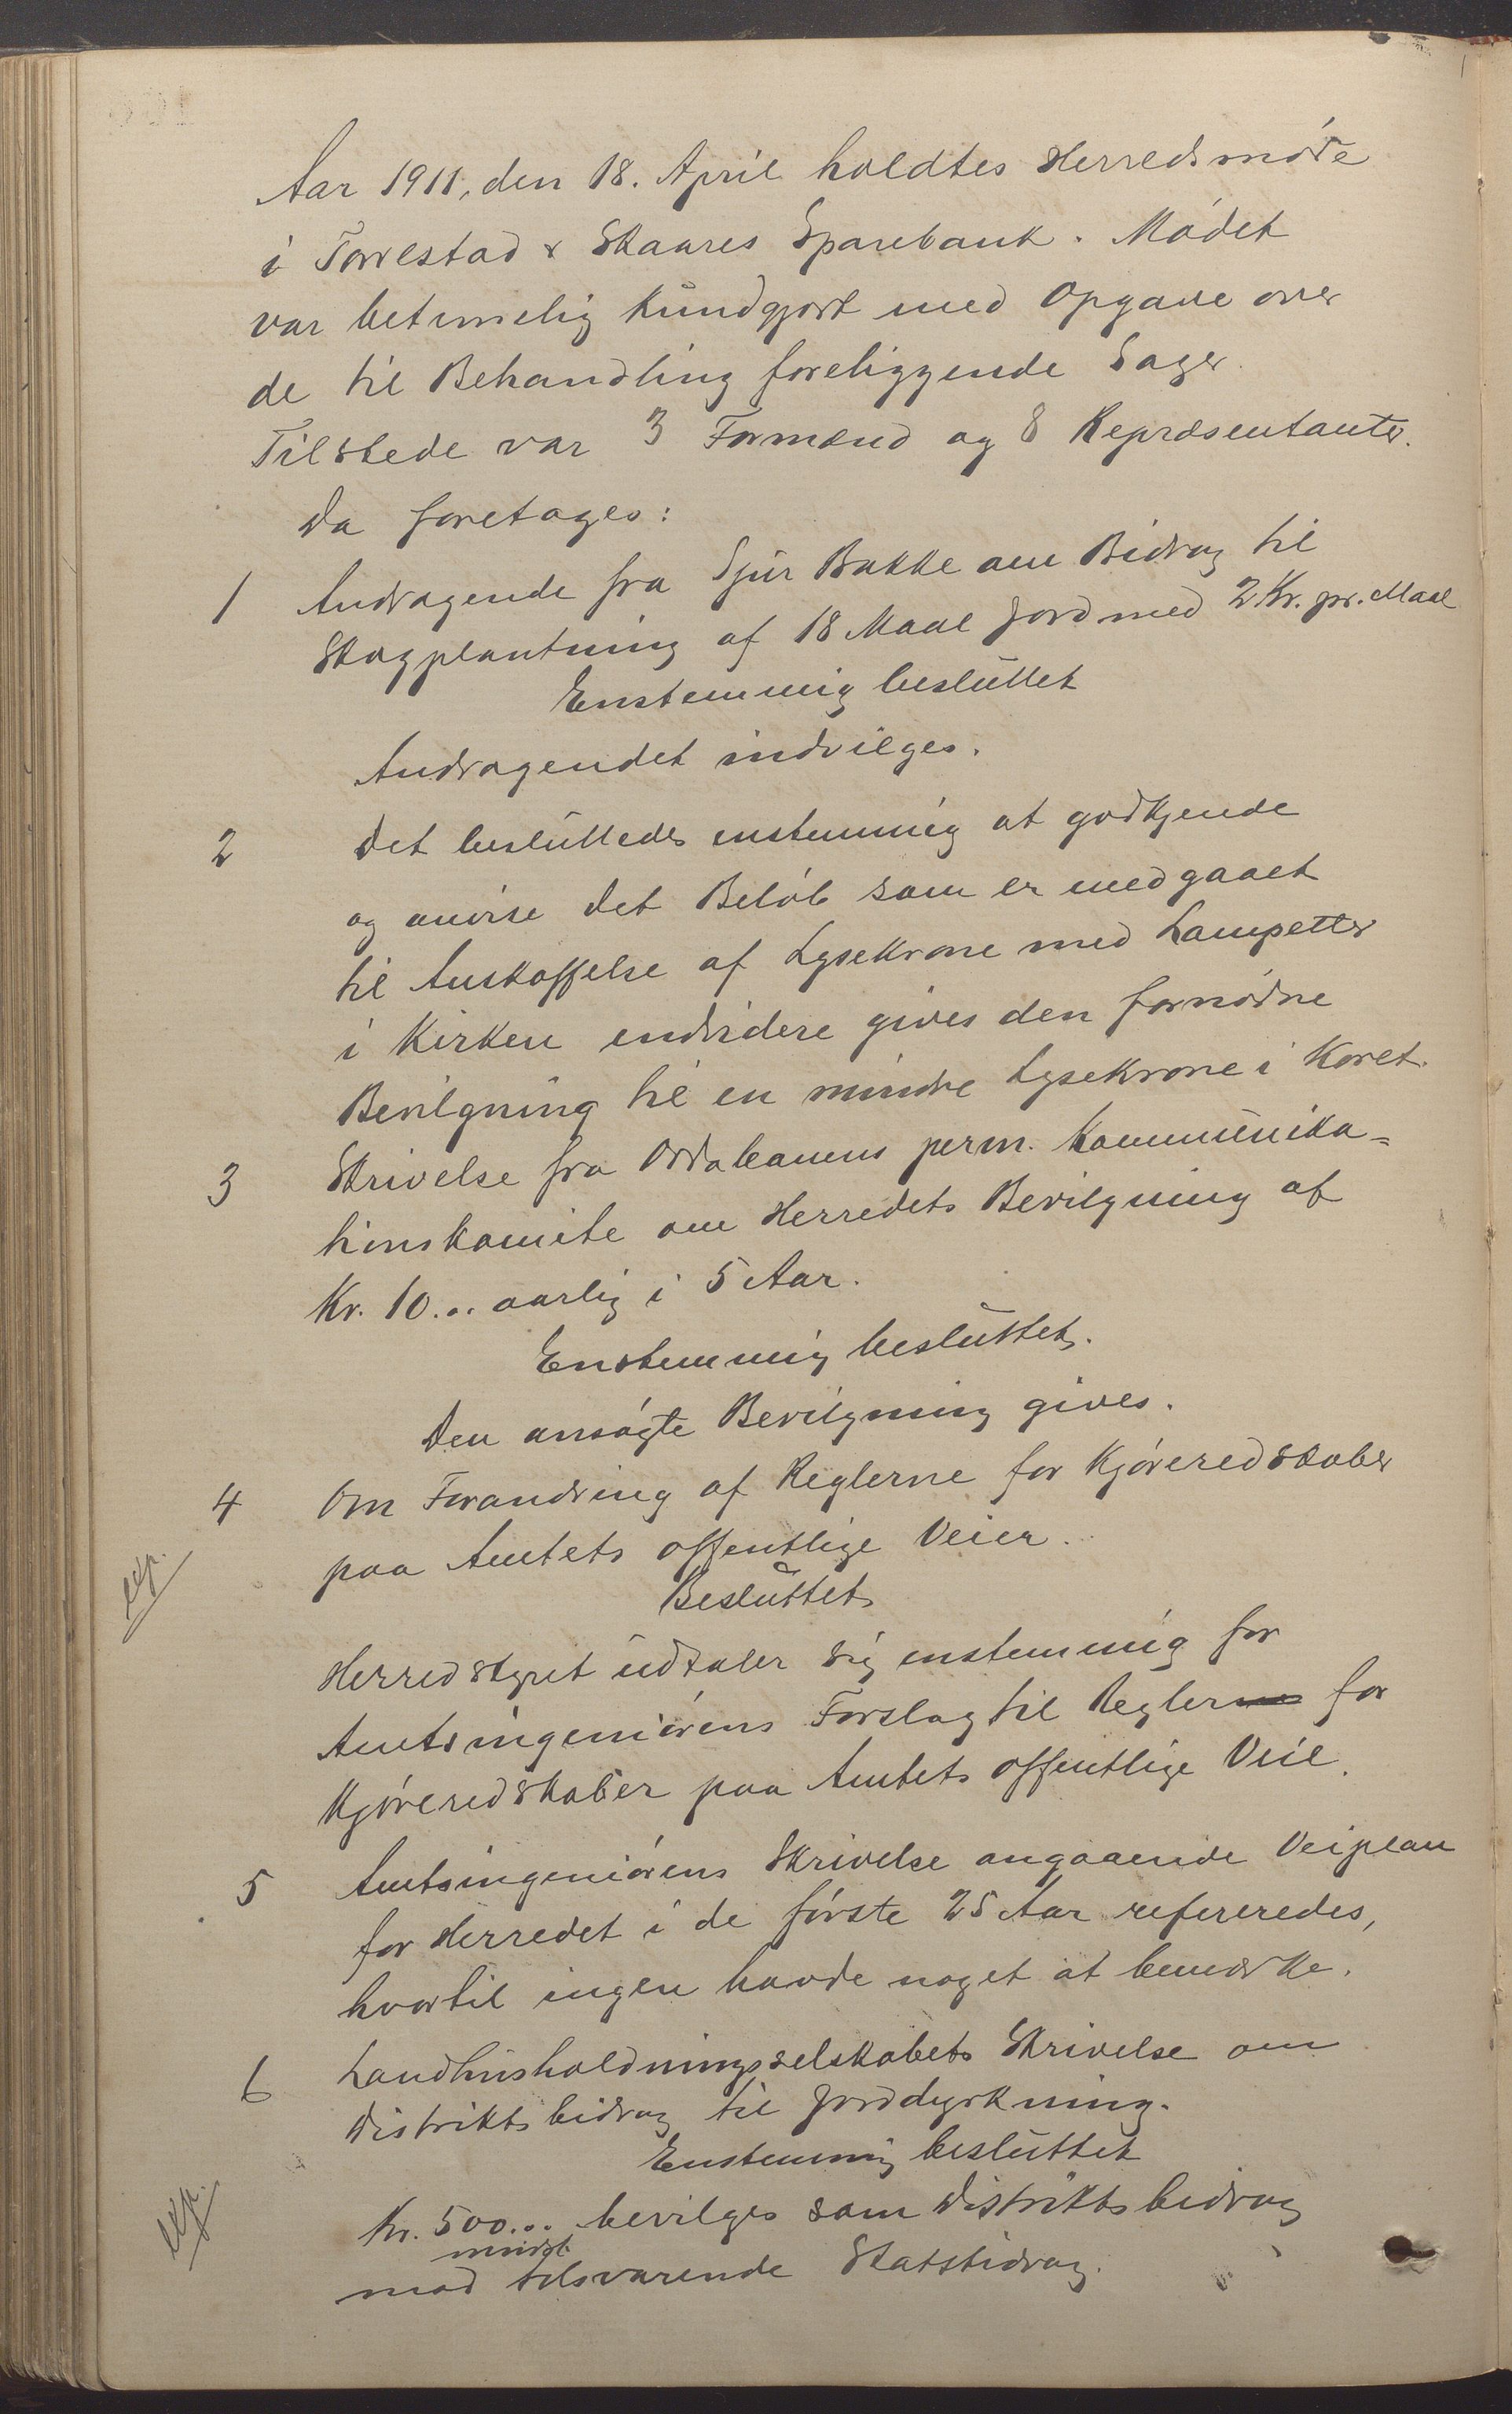 Aar 1911, den 18. April holdtes Herredsmøde
i Torvestad & Skaares Sparebank. Mødet
var betimelig kundgjort med Opgave over
de til Behandling foreliggende Sager.
Tilstede var 3 Formænd og 8 Repræsentanter.
Da foretages:
1 Andragende fra Sjur Bakke om Bidrag til
Skogplantning af 18 Maal Jord med 2 Kr. pr. Maal
Enstemmig besluttet
Andragendet indvilges.
2 Det besluttedes enstemmig at godkjende
og anvise det Beløb som er medgaaet
til Anskaffelse af Lysekrone med Lampetter
i Kirken endvidere gives den fornødne
Bevilgning til en mindre Lysekrone i Koret.
3 Skrivelse fra Oddabanens perm. Kommunika-
tionskomite om Herredets Bevilgning af
Kr. 10.00 aarlig i 5 Aar.
Enstemmig besluttet.
Den ansøgte Bevilgning gives.
4 Om Forandring af Reglerne for Kjøreredskaber
paa Amtets offentlige Veier.
Besluttet
Herredstyret udtaler sig enstemmig for
Amtsingeniørens Forslag til Reglerne for
Kjøreredskaber paa Amtets offentlige Veie.
5 Amtsingeniørens Skrivelse angaaende Veiplan
for Herredet i de første 25 Aar refereredes,
hvortil ingen havde noget at bemærke.
6 Landhusholdningsselskabets Skrivelse om
Distriktsbidrag til Jorddyrkning.
Enstemmig besluttet
Kr. 500.00 bevilges som Distriktsbidrag
mindst
mod tilsvarende Statsbidrag.